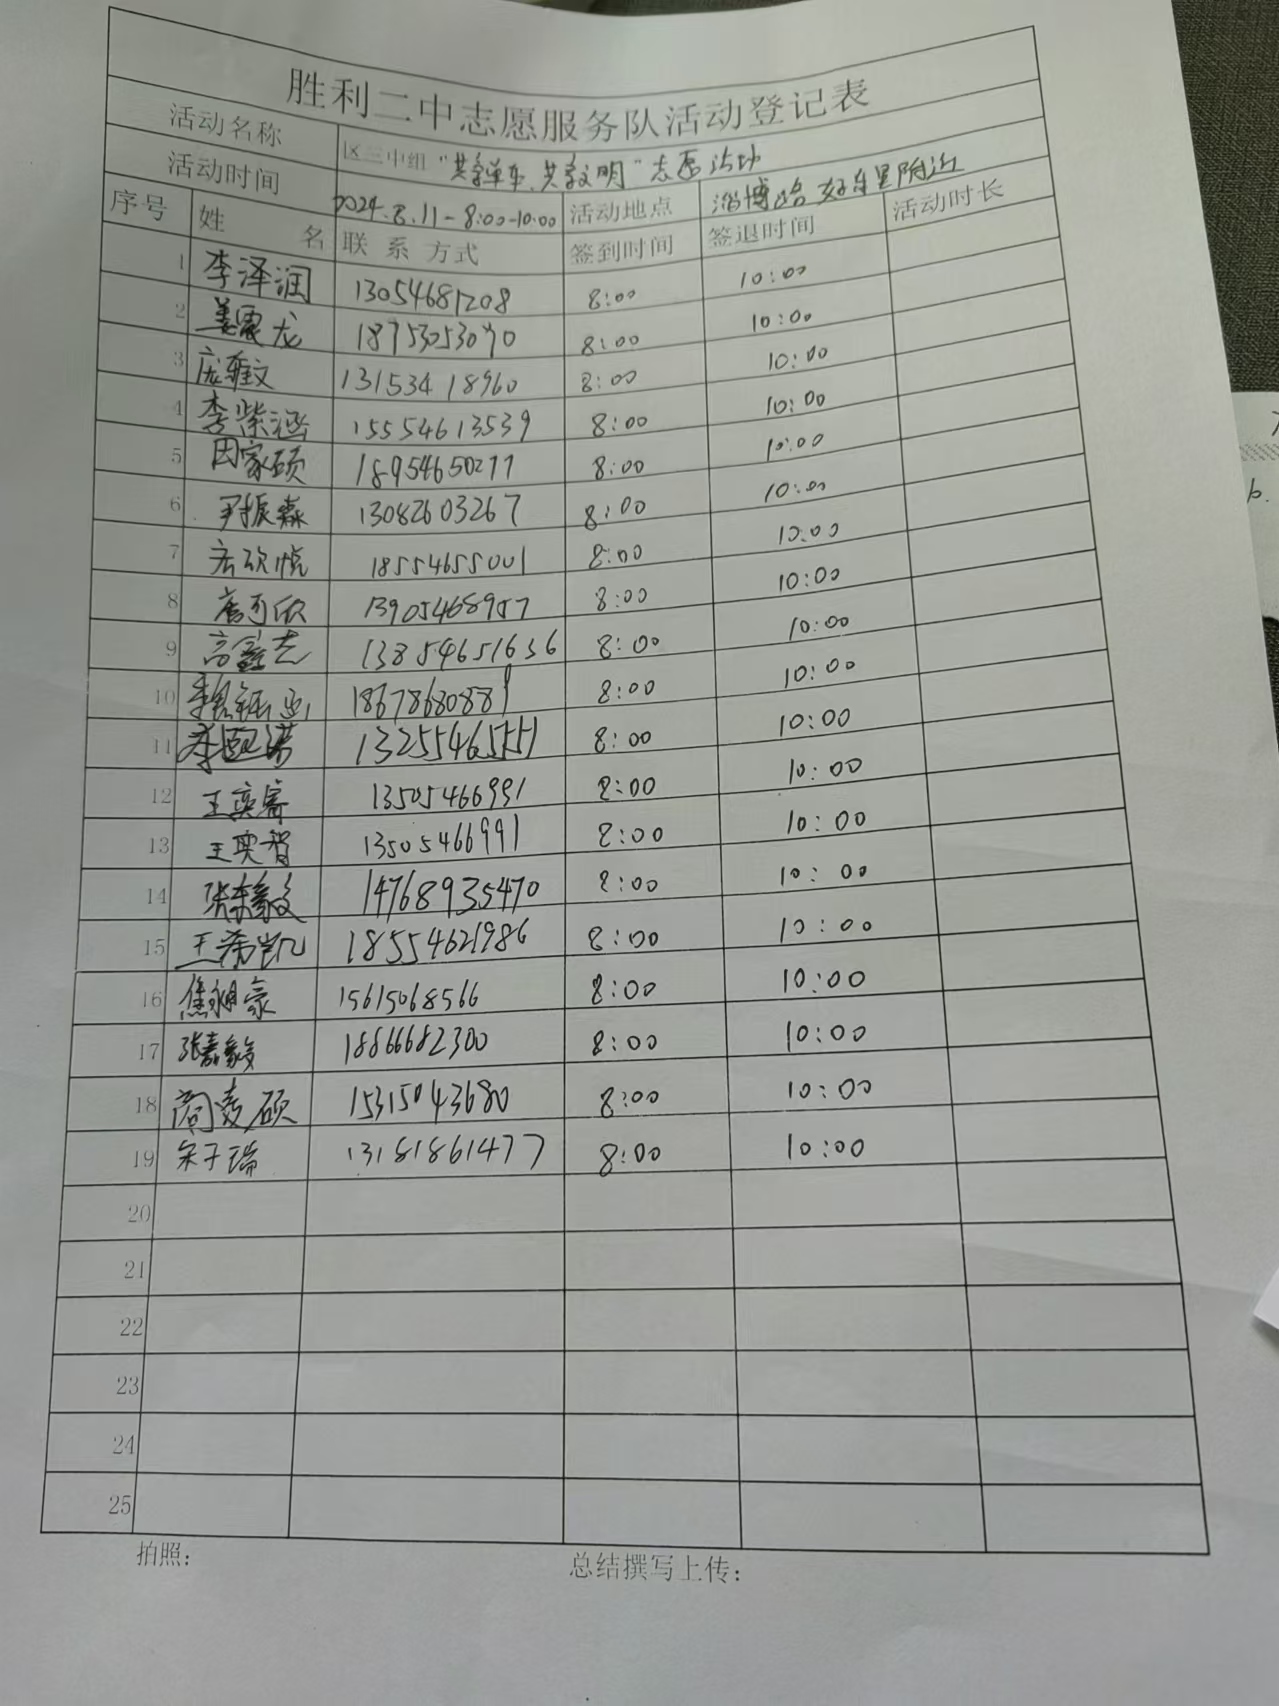 胜利二中志愿服务队活动登记表
活动名称 区三中组“共享单车、共享文明”志愿活动
活动时间 2024.8.11-8:00-10:00 活动地点 淄博路 好车里附近
序号 姓名 联系方式 签到时间 签退时间 活动时长
1 李泽润 13054681208 8:00 10:00
2 姜震龙 18753053070 8:00 10:00
3 庞雅文 13153418960 8:00 10:00
4 李紫涵 15554613539 8:00 10:00
5 因家硕 18954650277 8:00 10:00
6 尹振森 13082603267 8:00 10:00
7 欣悦 18554655001 8:00 10:00
8 可欣 13905468957 8:00 10:00
9 高鑫志 13854651636 8:00 10:00
10 8:00 10:00
11 李 8:00 10:00
12 王奕睿 13505466991 8:00 10:00
13 王奕智 13505466991 8:00 10:00
14 张 14768935470 8:00 10:00
15 王希凯 18554621986 8:00 10:00
16 焦 豪 15615068566 8:00 10:00
17 张嘉毅 18866682300 8:00 10:00
18 硕 15315043680 8:00 10:00
19 宋子瑞 13181861477 8:00 10:00
20
21
22
23
24
25
拍照： 总结撰写上传：